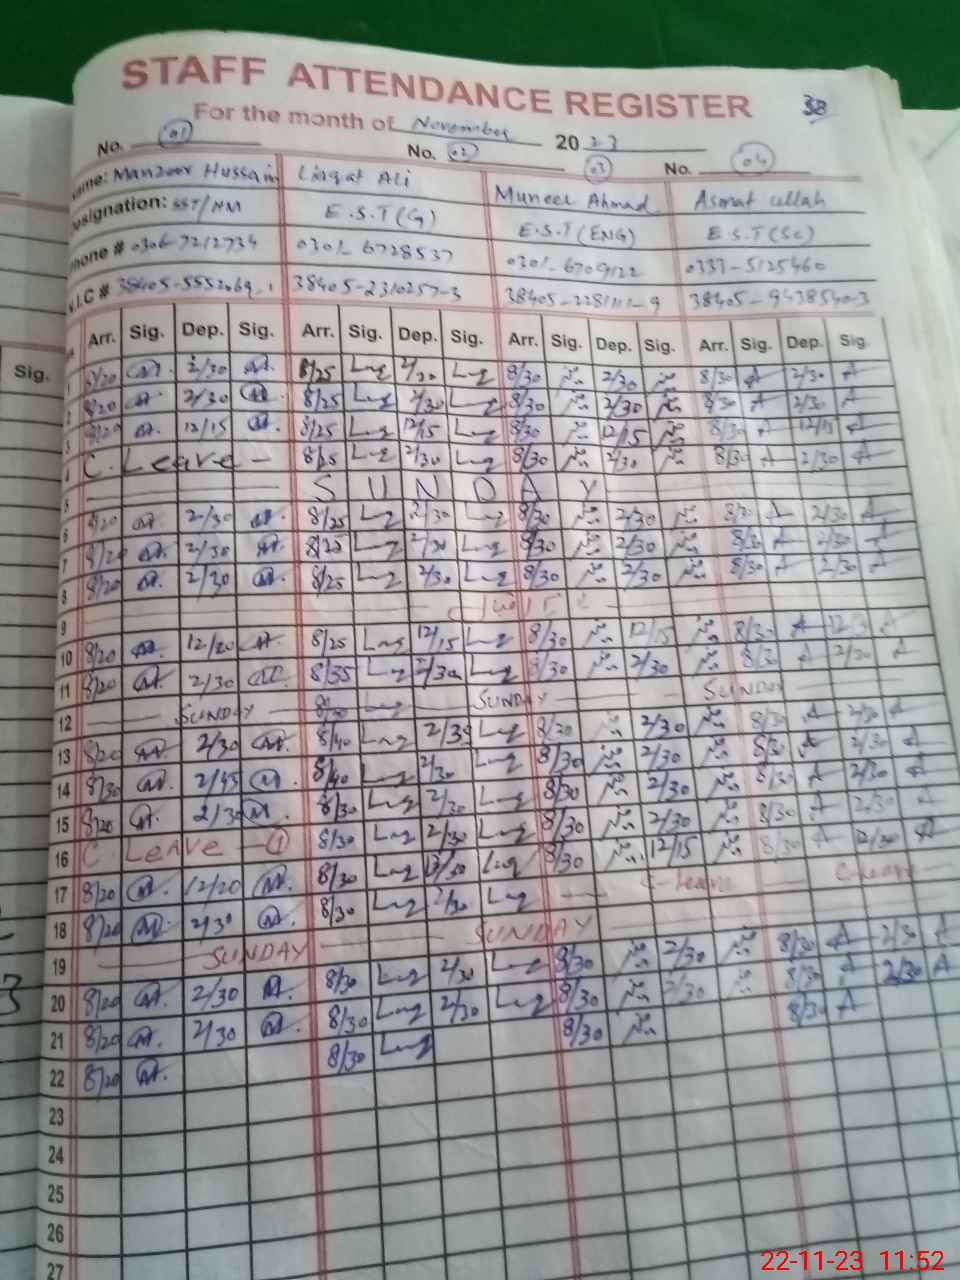 STAFF ATTENDANCE REGISTER
38
For the month of November 2023
No. 01 No. 02 03 No. 04
Name: Manzoor Hussain Liaqat Ali Muneer Ahmad Asmat ullah
Designation: SST/HM E.S.T(G) E.S.T(ENG) E.S.T(SC)
Phone # 0306-7212734 0301-6728537 0301-6709122 0333-5125460
N.I.C # 38405-2310257-3 38405-9438540-3
Sig. Arr. Sig. Dep. Sig. Arr. Sig. Dep. Sig. Arr. Sig. Dep. Sig. Arr. Sig. Dep. Sig.
1 8/20 2/30 8/25 2/30 8/30 2/30 8/30 2/30
2 8/20 2/30 8/25 2/30 8/30 2/30 8/30 2/30
3 8/20 12/15 8/25 12/15 8/30 12/15 8/30 12/15
4 C. Leave 8/25 2/30 8/30 2/30 8/30 2/30
5 SUNDAY
6 8/20 2/30 8/25 2/30 8/30 2/30 8/30 2/30
7 8/20 2/30 8/25 2/30 8/30 2/30 8/30 2/30
8 8/20 2/30 8/25 2/30 8/30 2/30 8/30 2/30
9
10 8/20 12/20 8/25 12/15 8/30 12/15 8/30
11 8/20 2/30 8/35 2/30 8/30 2/30 8/30 2/30
12 SUNDAY SUNDAY SUNDAY
13 8/20 2/30 8/40 2/35 8/20 2/30 8/30 2/30
14 8/30 2/45 8/40 2/30 8/30 2/30 8/30 2/30
15 8/20 2/30 8/30 2/30 8/30 2/30 8/30 2/30
16 C. Leave 1 8/30 2/30 8/30 2/30 8/30 2/30
17 8/20 12/20 8/30 12/30 8/30 12/15 8/30 12/30
18 8/20 2/30 8/30 2/30 C-leave C-leave
19 SUNDAY SUNDAY
20 8/20 2/30 8/30 2/30 8/30 2/30 8/30 2/30
21 8/20 2/30 8/30 2/30 8/30 2/30 8/30 2/30
22 8/20 8/30 8/30 8/30
23
24
25
26
27
22-11-23 11:52